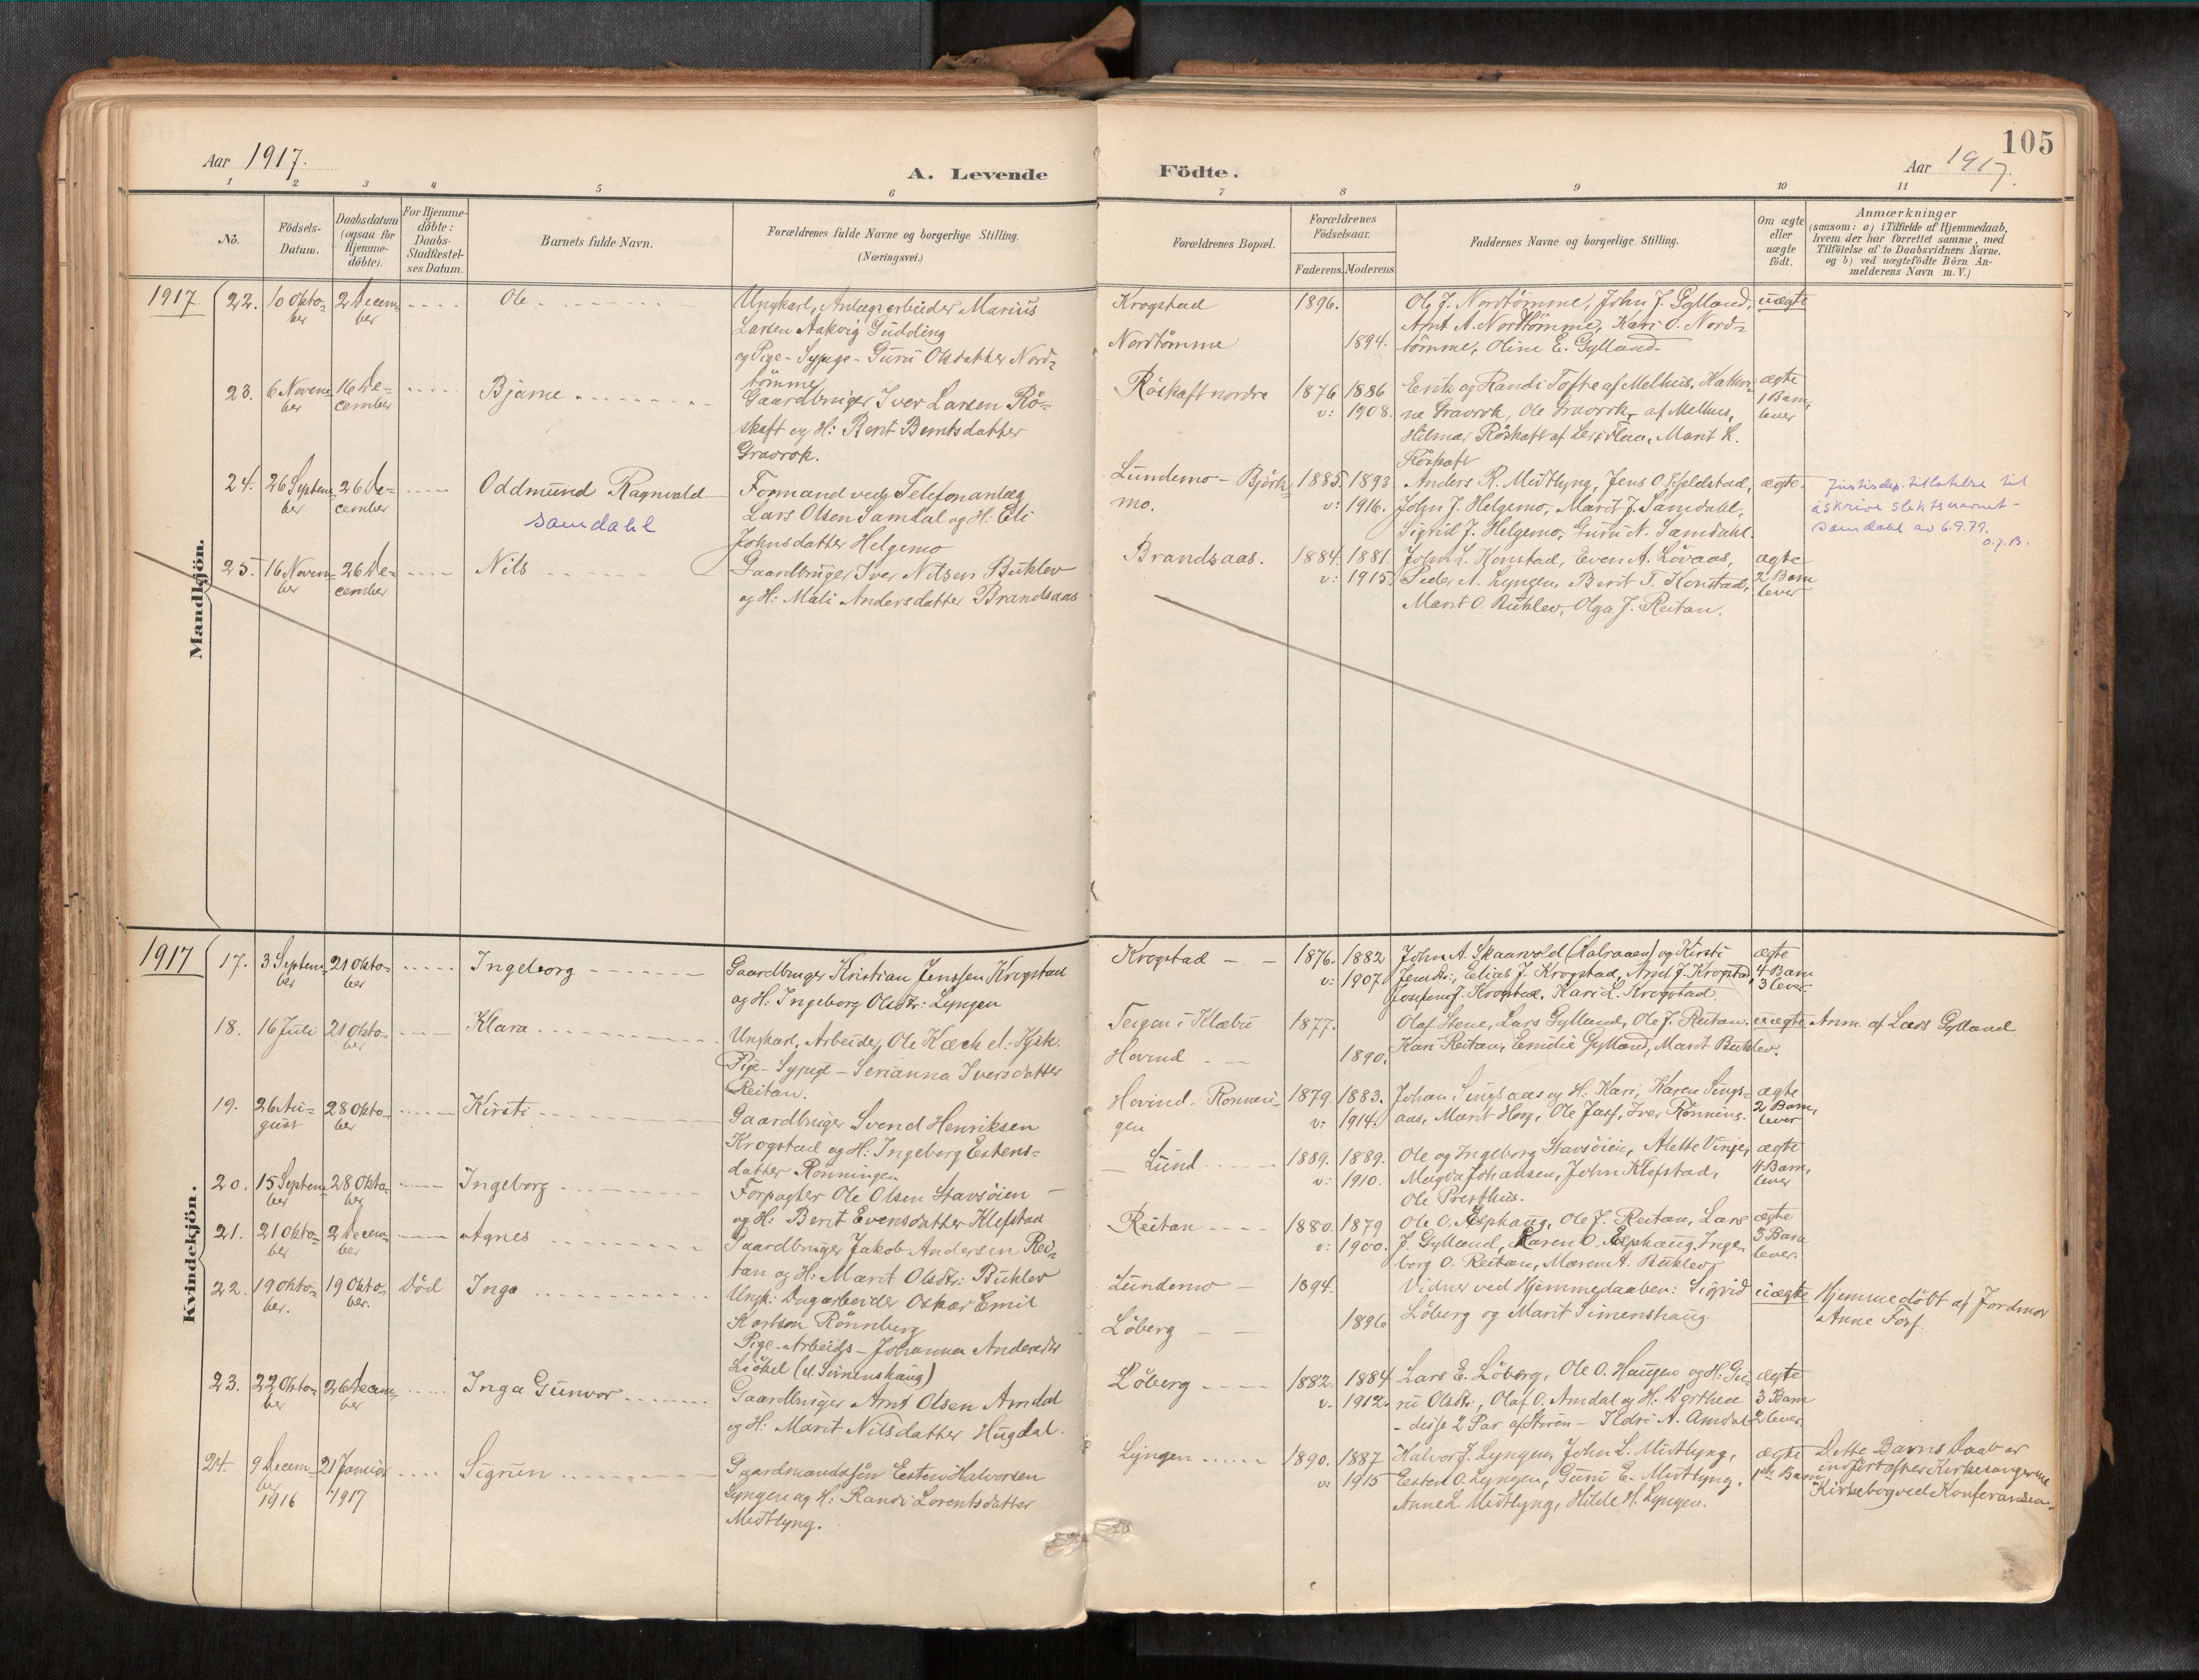 105
Aar 1917.
A. Levende Födte.
Aar 1917.
1 2 3 4 5 6 7 8 9 10 11
No.
Födsels-Datum.
Daabsdatum (ogsaa for Hjemme-döbte).
For Hjemme-döbte: Daabs-Stadfæstel-ses Datum.
Barnets fulde Navn.
Forældrenes fulde Navne og borgerlige Stilling. (Næringsvei.)
Forældrenes Bopæl.
Forældrenes Födselsaar.
Faderens. Moderens.
Faddernes Navne og borgerlige Stilling.
Om ægte eller uægte födt.
Anmærkninger
(saasom: a) i Tilfælde af Hjemmedaab,
hvem der har forrettet samme, med
Tilföielse af to Daabsvidners Navne.
og b) ved uægtefödte Börn An-
melderens Navn m. V.)
Mandkjön.
1917
22. 10 Okto-ber 2 Decem-ber Ole
Ungkarl, Anlægsarbeider Marius
Larsen Aakvig Gudding
og Pige - Sypige - Guru Olsdatter Nord-
tømme
Krogstad 1896.
Nordtømme 1894.
Ole J. Nordtømme, John J. Gylland,
Arnt A. Nordtømme, Kari O. Nord-
tømme, Oline E. Gylland.
uægte
23. 6 Novem-ber 16 De-cember Bjarne
Gaardbruger Iver Larsen Rö-
skaft og H: Berit Berntsdatter
Gravrok.
Röskaft nordre 1876 1886
v: 1908.
Erik og Randi Tofte af Melhus,
ne Gravrok, Ole Gravrok, af Melhus,
Hilmar Röskaft af Ler i Flaa, Marit L.
Röskaft
ægte
1 Barn,
lever
24. 26 Septem-ber 26 De-cember Oddmund Ragnvald
Samdahl
Formand ved Telefonanlæg
Lars Olsen Samdal og H: Eli
Johnsdatter Helgemo
Lundemo - Björk-
mo.
1885. 1893
v: 1916.
Anders R. Midtlyng, Jens O. Kjeldstad,
John J. Helgemo, Marit J. Samdahl,
Sigrid J. Helgemo, Guru N. Samdahl.
ægte.
Justisdep. tillatelse til
å skrive slektsnavnet -
Samdahl av 6.9.79.
O.J.B.
25. 16 Novem-ber 26 De-cember Nils
Gaardbruger Iver Nilsen Buhlev
og H: Mali Andersdatter Brandsaas
Brandsaas. 1884. 1881.
v: 1915.
John L. Konstad, Even A. Lövaas,
Peder A. Lyngen, Berit T. Konstad,
Marit O. Buhlev, Olga J. Reitan.
ægte
2 Barn
lever
Kvindekjön.
1917
17. 3 Septem-ber 21 Okto-ber Ingeborg
Gaardbruger Kristian Jenssen Krogstad
og H: Ingeborg Olsdtr: Lyngen
Krogstad 1876. 1882
v: 1907
John A. Skaarvold og Kirsti
Jensdtr:, Elias J. Krogstad, Arnt J. Krogstad,
Josefine J. Krogstad, Kari L. Krogstad
ægte
4 Barn
3 lever.
18. 16 Juli 21 Okto-ber Klara
Ungkarl, Arbeider, Ole
Pige - Sypige - Serianna Iversdatter
Reitan.
Teigen i Klæbu 1877.
Hovind 1890.
Olaf Stene, Lars Gylland, Ole J. Reitan.
Kari Reitan, Emilie Gylland, Marit Buhlev.
uægte
Anm. af Lars Gylland
19. 26 Au-gust 28 Okto-ber Kirsti
Gaardbruger Svend Henriksen
Krogstad og H: Ingeborg Estens-
datter Rönningen
Hovind - Rönnin-
gen
1879. 1883.
v: 1914.
Johan Singsaas og H: Kari, Karen Sings-
aas, Marit Horg, Ole Fasf, Iver Rönning.
ægte
2 Barn,
lever
20. 15 Septem-ber 28 Okto-ber Ingeborg
Forpagter Ole Olsen Stavsöien
og H: Berit Evensdatter Klefstad
Lund 1889. 1889.
v: 1910.
Ole og Ingeborg Stavsöien, Alette Vinje,
Magda Johansen, John Klefstad,
Ole Presthus.
ægte
4 Barn,
lever
21. 21 Okto-ber 2 Decem-ber Agnes
Gaardbruger Jakob Andersen Rei-
tan og H: Marit Olsdtr: Buhlev
Reitan 1880. 1879
v: 1900.
Ole O. Esphaug, Ole J. Reitan, Lars
J. Gylland, Karen O. Esphaug, Inge-
borg O. Reitan, Maren A. Buhlev
ægte
5 Barn
lever.
22. 19 Okto-ber. 19 Okto-ber. Död Inga
Ungk: Dagarbeider Oskar Emil
Karlsen Rönneberg
Pige - Arbeids - Johanna Andersdtr
Liöhel (el. Simenshaug)
Lundemo 1894.
Löberg 1896
Vidner ved Hjemmedaaben: Sigrid
Löberg og Marit Simenshaug.
uægte
Hjemmedöbt af Jordmor
Anne Fosf.
23. 22 Okto-ber 26 Decem-ber Inga Gunvor
Gaardbruger Arnt Olsen Amdal
og H: Marit Nilsdatter Hugdal.
Löberg 1882. 1884
v. 1912.
Lars E. Löberg, Ole O. Haugen og H: Gu-
ru Olsdtr:, Olaf O. Amdal og H: Dorthea
- disse 2 Par af Stören - Ildri A. Amdal
ægte
3 Barn
2 lever.
24. 9 Decem-ber 1916 21 Januar 1917 Sigrun
Gaardmandssön Esten Halvorsen
Lyngen og H: Randi Lorentsdatter
Midtlyng.
Lyngen 1890. 1887
v: 1915
Halvor J. Lyngen, John L. Midtlyng,
Esten O. Lyngen, Guru E. Midtlyng,
Anne L. Midtlyng, Hilde H. Lyngen.
ægte
1ste Barn
Dette Barns Daab er
indfört efter Kirkesangerens
Kirkebog ved Konferansen.